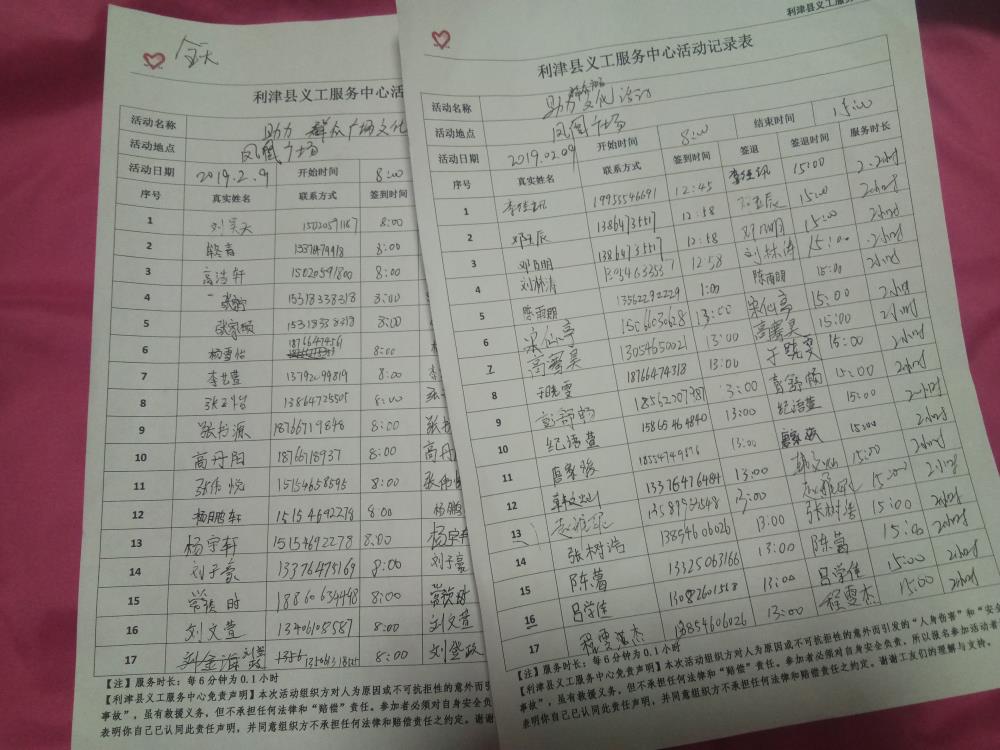 全天
利津县义工服务中心活
活动名称 助力 群众广场文化
活动地点 凤凰广场
活动日期 2019.2.9 开始时间 8:00
序号 真实姓名 联系方式 签到时间
1 刘昊天 15020591167 8:00
2 8:00
3 高浩轩 15020591800 8:00
4 15318338318 8:00
5 张家硕 15318338318 8:00
6 杨雪怡 18766474561 8:00
7 李艺萱 13792099819 8:00
8 13864725505 8:00
9 张书源 18766719848 8:00 张书
10 高丹阳 18766718937 8:00 高丹
11 张伟悦 15154658595 8:00
12 杨鹏轩 15154692278 8:00 杨鹏
13 杨宇轩 15154692278 8:00 杨宇轩
14 刘子豪 13376475169 8:00 刘子豪
15 18860634448 8:00
16 刘文萱 13406108587 8:00 刘文萱
17 8:00 刘登政
【注】服务时长：每6分钟为0.1小时
【利津县义工服务中心免责声明】本次活动组织方对人为原因或不可抗拒性的意外而引
事故”，虽有救援义务，但不承担任何法律和“赔偿”责任。参加者必须对自身安全负
表明你自己已认同此责任声明，并同意组织方不承担任何法律和赔偿责任之约定。谢谢
利津县义工服务
利津县义工服务中心活动记录表
活动名称 助力文化活动
活动地点 凤凰广场
活动日期 2019.02.09 开始时间 8:00 结束时间 15:00
序号 真实姓名 联系方式 签到时间 签退 签退时间 服务时长
1 李佳凯 19955546691 12:45 李佳凯 15:00
2 邓玉辰 13864735517 12:58 15:00
3 13864735517 12:58 15:00
4 刘林涛 12:58 刘林涛 15:00
5 陈雨朋 13562292229 1:00 陈雨朋 15:00
6 宋仙亭 15066030628 13:00 宋仙亭 15:00
7 高赛昊 13054650021 13:00 高赛昊 15:00
8 于晓雯 18766474318 13:00 于晓雯 15:00
9 彭舒畅 18562207987 13:00 彭舒畅 15:00
10 纪语萱 15865464840 13:00 纪语萱 15:00
11 18554749876 13:00 15:00
12 13376476484 13:00 15:00
13 13:00 15:00
张树浩 13854606026 13:00 张树浩 15:00
15 陈蕾 13325063166 13:00 陈蕾 15:00
16 吕学佳 13082601558 13:00 吕学佳 15:00
17 程雯杰 13854606026 13:00 程雯杰 15:00
【注】服务时长：每6分钟为0.1小时
【利津县义工服务中心免责声明】本次活动组织方对人为原因或不可抗拒性的意外而引发的“人身伤害”和“安全
事故”，虽有救援义务，但不承担任何法律和“赔偿”责任。参加者必须对自身安全负责。所以报名参加活动者
表明你自己已认同此责任声明，并同意组织方不承担任何法律和赔偿责任之约定。谢谢工友们的理解与支持。